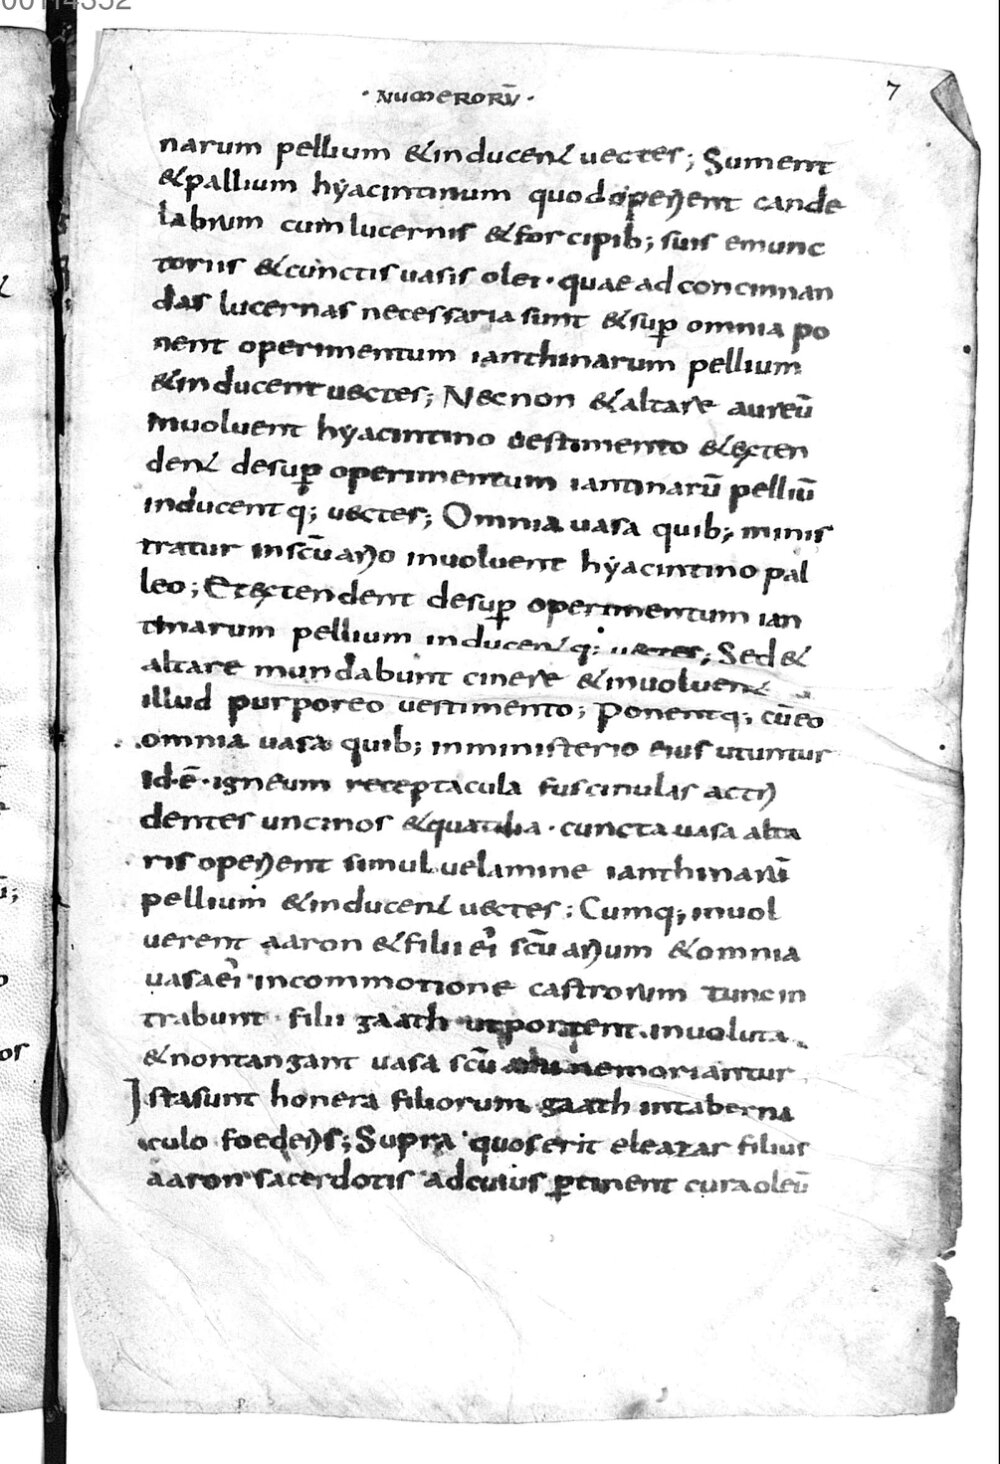 00114352
· NUMERORŪ ·
7
narum pellium &inducen& uectes; Sument
&pallium hyacintinum quod operient cande
labrum cum lucernis &forcipib; suis emunc
toriis &cunctis uasis olei · quae ad concinnan
das lucernas necessaria sunt &sup̄ omnia po
nent operimentum ianthinarum pellium
&inducent uectes; Necnon &altare aureū
inuoluent hyacintino uestimento &ęcten
den& desup̄ operimentum iantinarū pelliū
inducentq; uectes; Omnia uasa quib; minis
tratur inscūario inuoluent hyacintino pal
leo; Etęctendent desup̄ operimentum ian
tinarum pellium inducen&q; uectes; Sed &
altare mundabunt cinere &inuoluen&
illud purporeo uestimento; Ponentq; cūeo
omnia uasa quib; inministerio eius utuntur
Id·ē· igneum receptacula fuscinulas actri
dentes uncinos &quatilia · cuncta uasa alta
ris operient simul uelamine ianthinarū
pellium &inducen& uectes; Cumq; inuol
uerent aaron &filii ei' scūarium &omnia
uasa ei' incommotione castrorum tunc in
trabunt filii gaath utportent inuoluta
&nontangant uasa scūarii nemoriantur
Istasunt honera filiorum gaath intaberna
culo foederis; Supra quos erit eleazar filius
aaron sacerdotis adcuius p̄tinent cura oleū